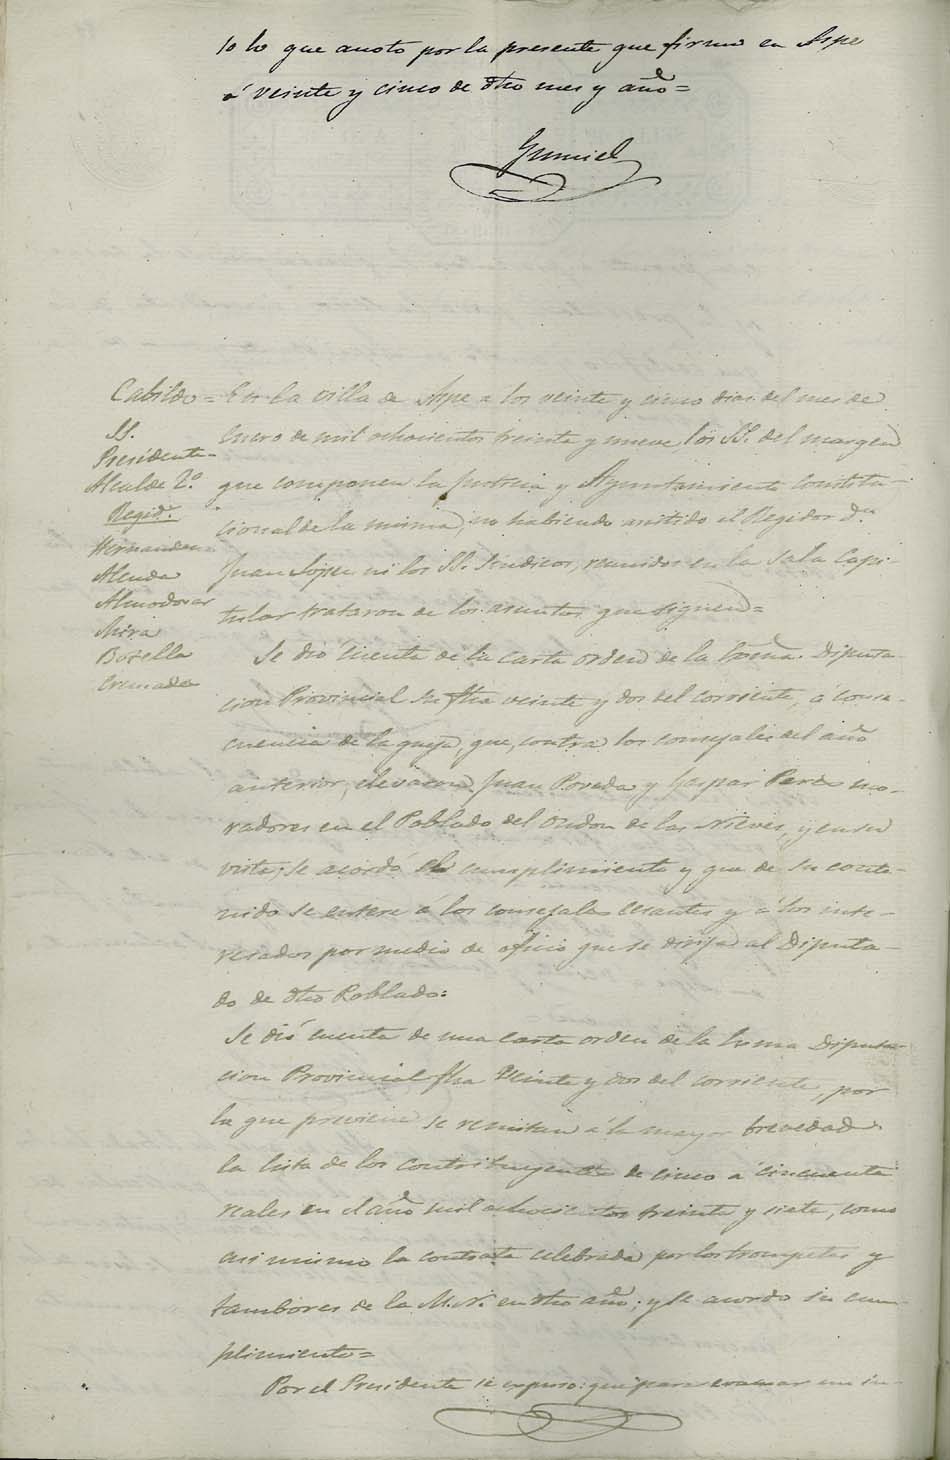 to lo que anoto por la presente que firmo en Aspe
á veinte y cinco de dho mes y año=
Gumiel
Cabildo=
SS.
Presidente
Alcalde 2º
Regid.s
Hernandez
Alenda
Almodovar
Mira
Botella
Cremades
En la villa de Aspe a los veinte y cinco dias del mes de
Enero de mil ochocientos treinta y nueve, los SS. del margen
que componen la Justicia y Ayuntamiento Constitu-
cional de la misma, no habiendo asistido el Regidor Dn
Juan Lopez ni los SS. Sindicos, reunidos en la Sala Capi-
tular trataron de los asuntos que siguen=
Se dió cuenta de la carta orden de la Exma. Diputa-
cion Provincial su fha veinte y dos del corriente, á conse-
cuencia de la queja, que, contra los consejales del año
anterior, elevaron Juan Poveda y Gaspar Perez mo-
radores en el Poblado del Ondon de las Nieves, y en su
vista; se acordó su cumplimiento y que de su conte-
nido se entere á los consejales cesantes y á los inte-
resados por medio de oficio que se dirija al Diputa-
do de dho Poblado:
Se dió cuenta de una carta orden de la Exma Diputa-
cion Provincial fha veinte y dos del corriente, por
la que previene se remitan á la mayor brevedad
la lista de los contribuyentes de cinco a cincuenta
reales en el año mil ochocientos treinta y siete, como
asi mismo la contrata celebrada por los trompetas y
tambores de la M. N. en dho año; y se acordo su cum-
plimiento=
Por el Presidente se espuso: que para evacuar un in-